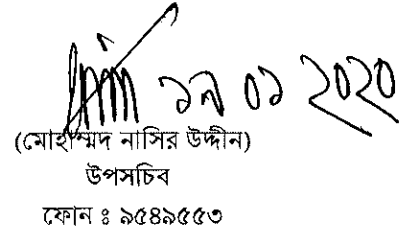 ১৯ ০১ ২০২০
(মোহাম্মদ নাসির উদ্দীন)
উপসচিব
ফোন ঃ ৯৫৪৯৫৫৩